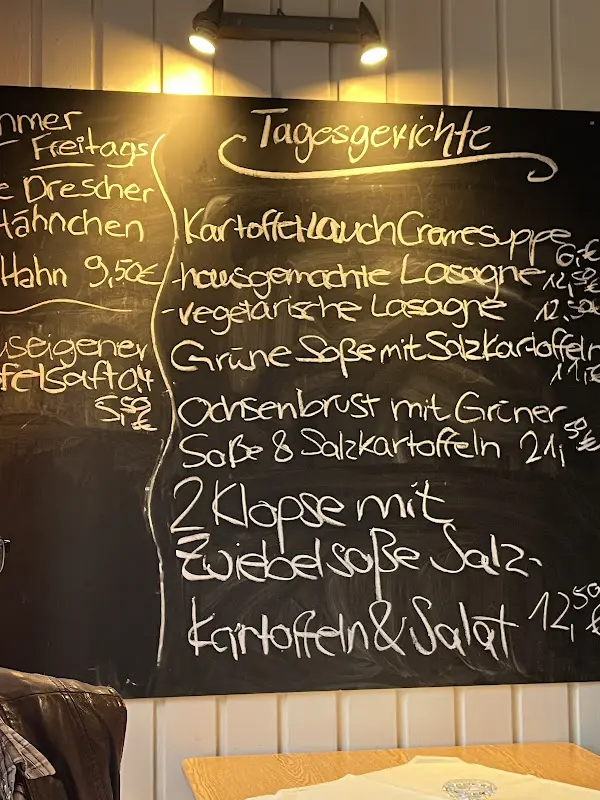 Freitags
Drescher
Hähnchen
Hahn 9,50€
5,50
€
Tagesgerichte
KartoffelLauchCremesuppe
6,-€
-hausgemachte Lasagne 12,50€
-vegetarische Lasagne 12,50€
Grüne Soße mit Salzkartoffeln
11,-€
Ochsenbrust mit Grüner
Soße & Salzkartoffeln 21,50€
2 Klopse mit
Zwiebelsoße Salz-
kartoffeln & Salat 12,50€